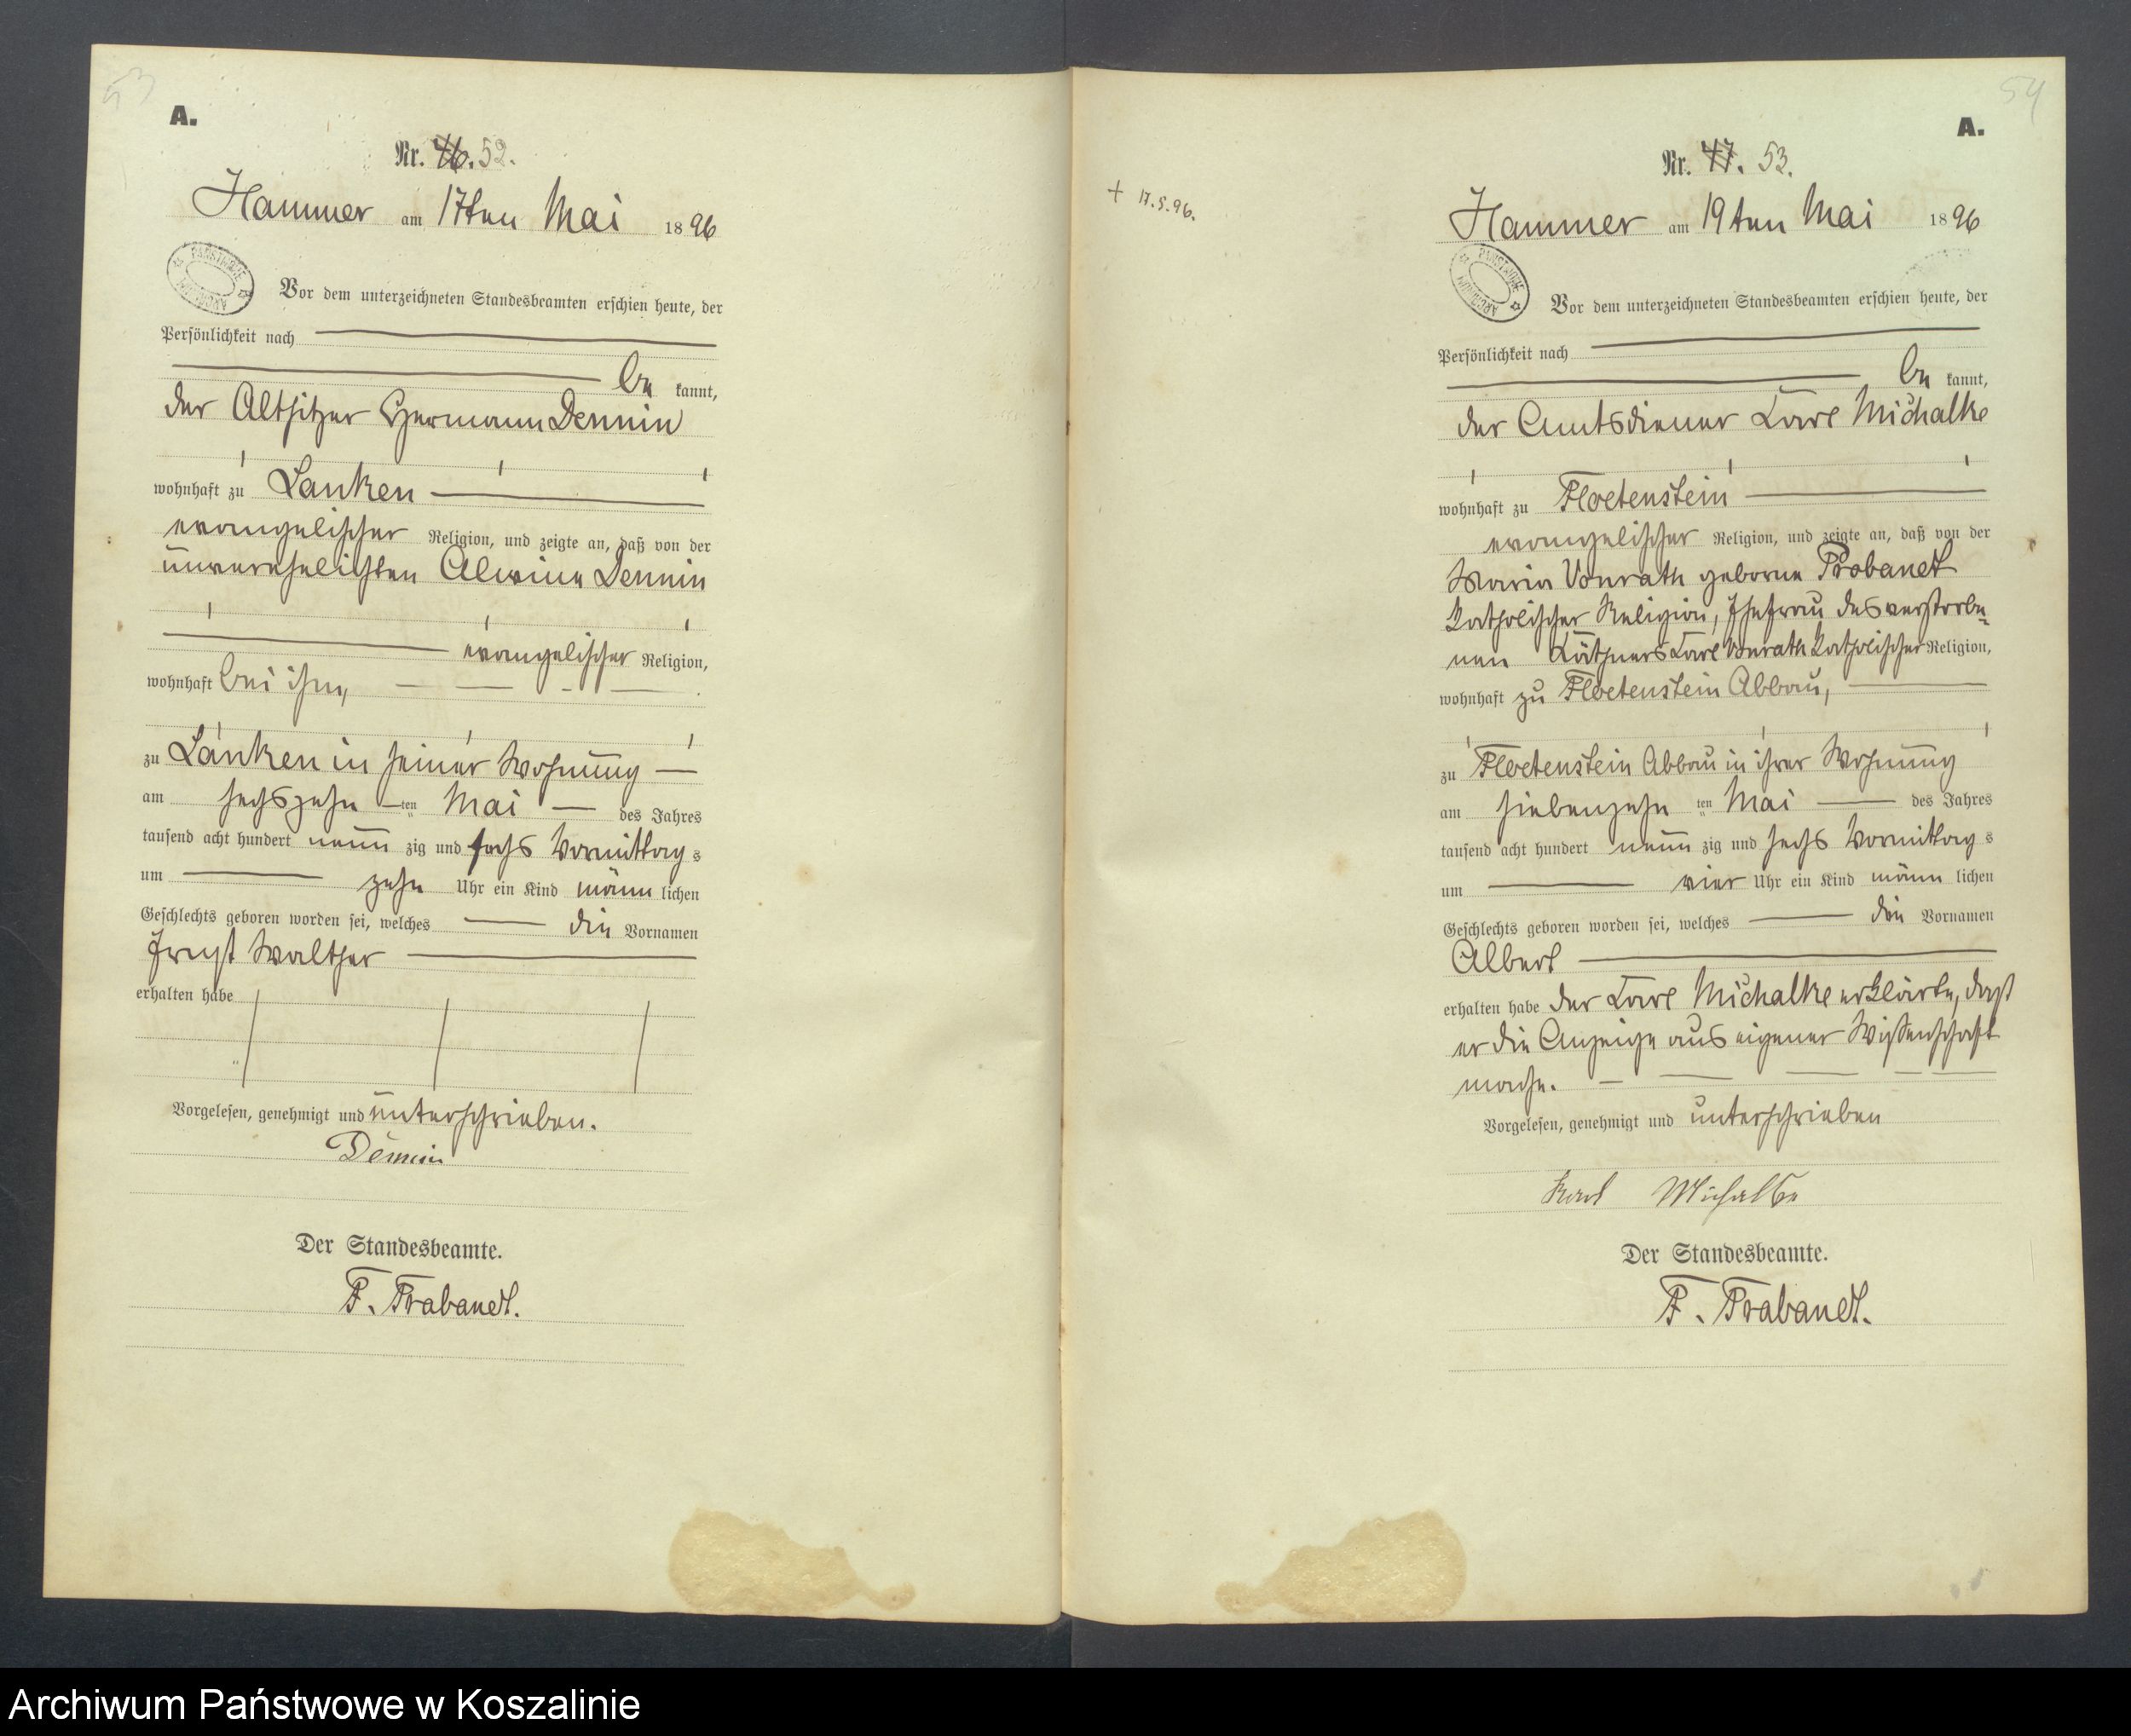 53
A.
Nr. 46. 52.
Hammer am 17ten Mai 1896
Vor dem unterzeichneten Standesbeamten erschien heute, der
Persönlichkeit nach
be kannt,
der Altsitzer Hermann Demnin
wohnhaft zu Lanken
evangelischer Religion, und zeigte an, daß von der
unverehelichten Alwine Demnin
evangelischer Religion,
wohnhaft bei ihm,
zu Lanken in seiner Wohnung
am sechszehn ten Mai des Jahres
tausend acht hundert neun zig und sechs Vormittag s
um zehn Uhr ein Kind männ lichen
Geschlechts geboren worden sei, welches die Vornamen
Ernst Walther
erhalten habe
Vorgelesen, genehmigt und unterschrieben.
Demnin
Der Standesbeamte.
F. Trabandt.
54
A.
Nr. 47. 53.
+ 17.5.96.
Hammer am 19ten Mai 1896
Vor dem unterzeichneten Standesbeamten erschien heute, der
Persönlichkeit nach
be kannt,
der Amtsdiener Carl Michalke
wohnhaft zu Floetenstein
evangelischer Religion, und zeigte an, daß von der
Maria Vonrath geborene
katholischer Religion, Ehefrau des verstorbe=
nen Käthners Carl Vonrath katholischer Religion,
wohnhaft zu Floetenstein Abbau,
zu Floetenstein Abbau in ihrer Wohnung
am siebenzehn ten Mai des Jahres
tausend acht hundert neun zig und sechs Vormittag s
um vier Uhr ein Kind männ lichen
Geschlechts geboren worden sei, welches die Vornamen
Albert
erhalten habe der Carl Michalke erklärte, daß
er die Anzeige aus eigener Wissenschaft
mache.
Vorgelesen, genehmigt und unterschrieben
Karl Michalke
Der Standesbeamte.
F. Trabandt.
Archiwum Państwowe w Koszalinie